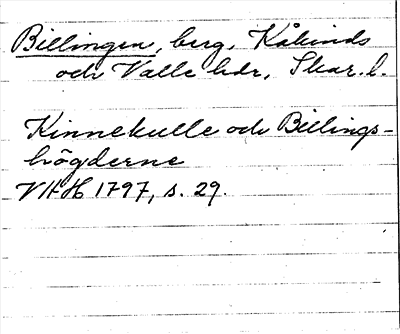 Billingen, berg, Kåkinds
och Valle hdr, Skar. l.
Kinnekulle och Billings-
högderne
VHH 1797, s. 29.